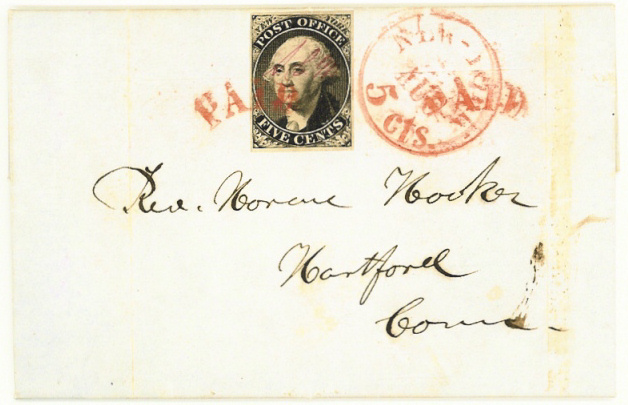 POST OFFICE
FIVE CENTS
PAID
NEW-YORK
AUG
5 cts.
PAID
Rev. Horace Hooker
Hartford
Conn.